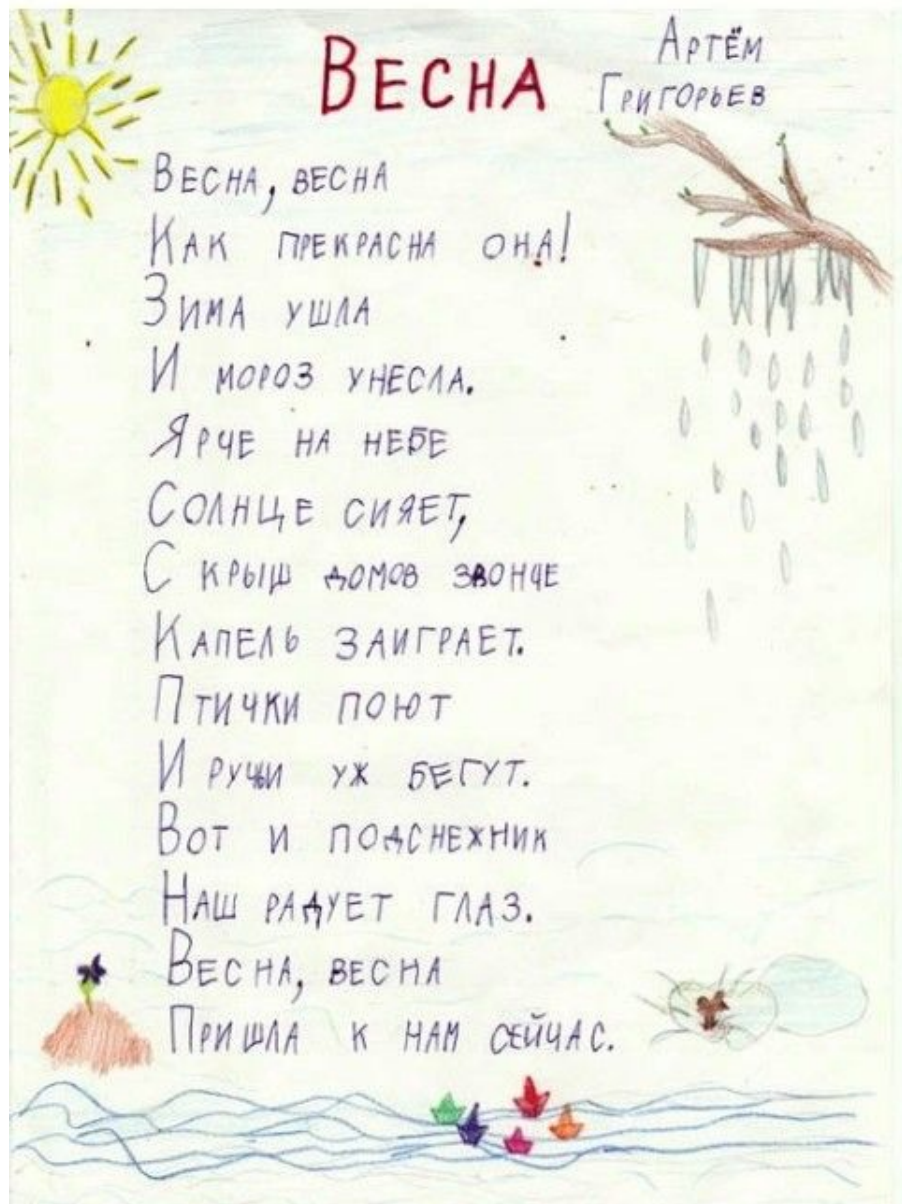 Весна
Артём
Григорьев
Весна, весна
Как прекрасна она!
Зима ушла
И мороз унесла.
Ярче на небе
Солнце сияет,
С крыш домов звонче
Капель заиграет.
Птички поют
И ручьи уж бегут.
Вот и подснежник
Наш радует глаз.
Весна, весна
Пришла к нам сейчас.